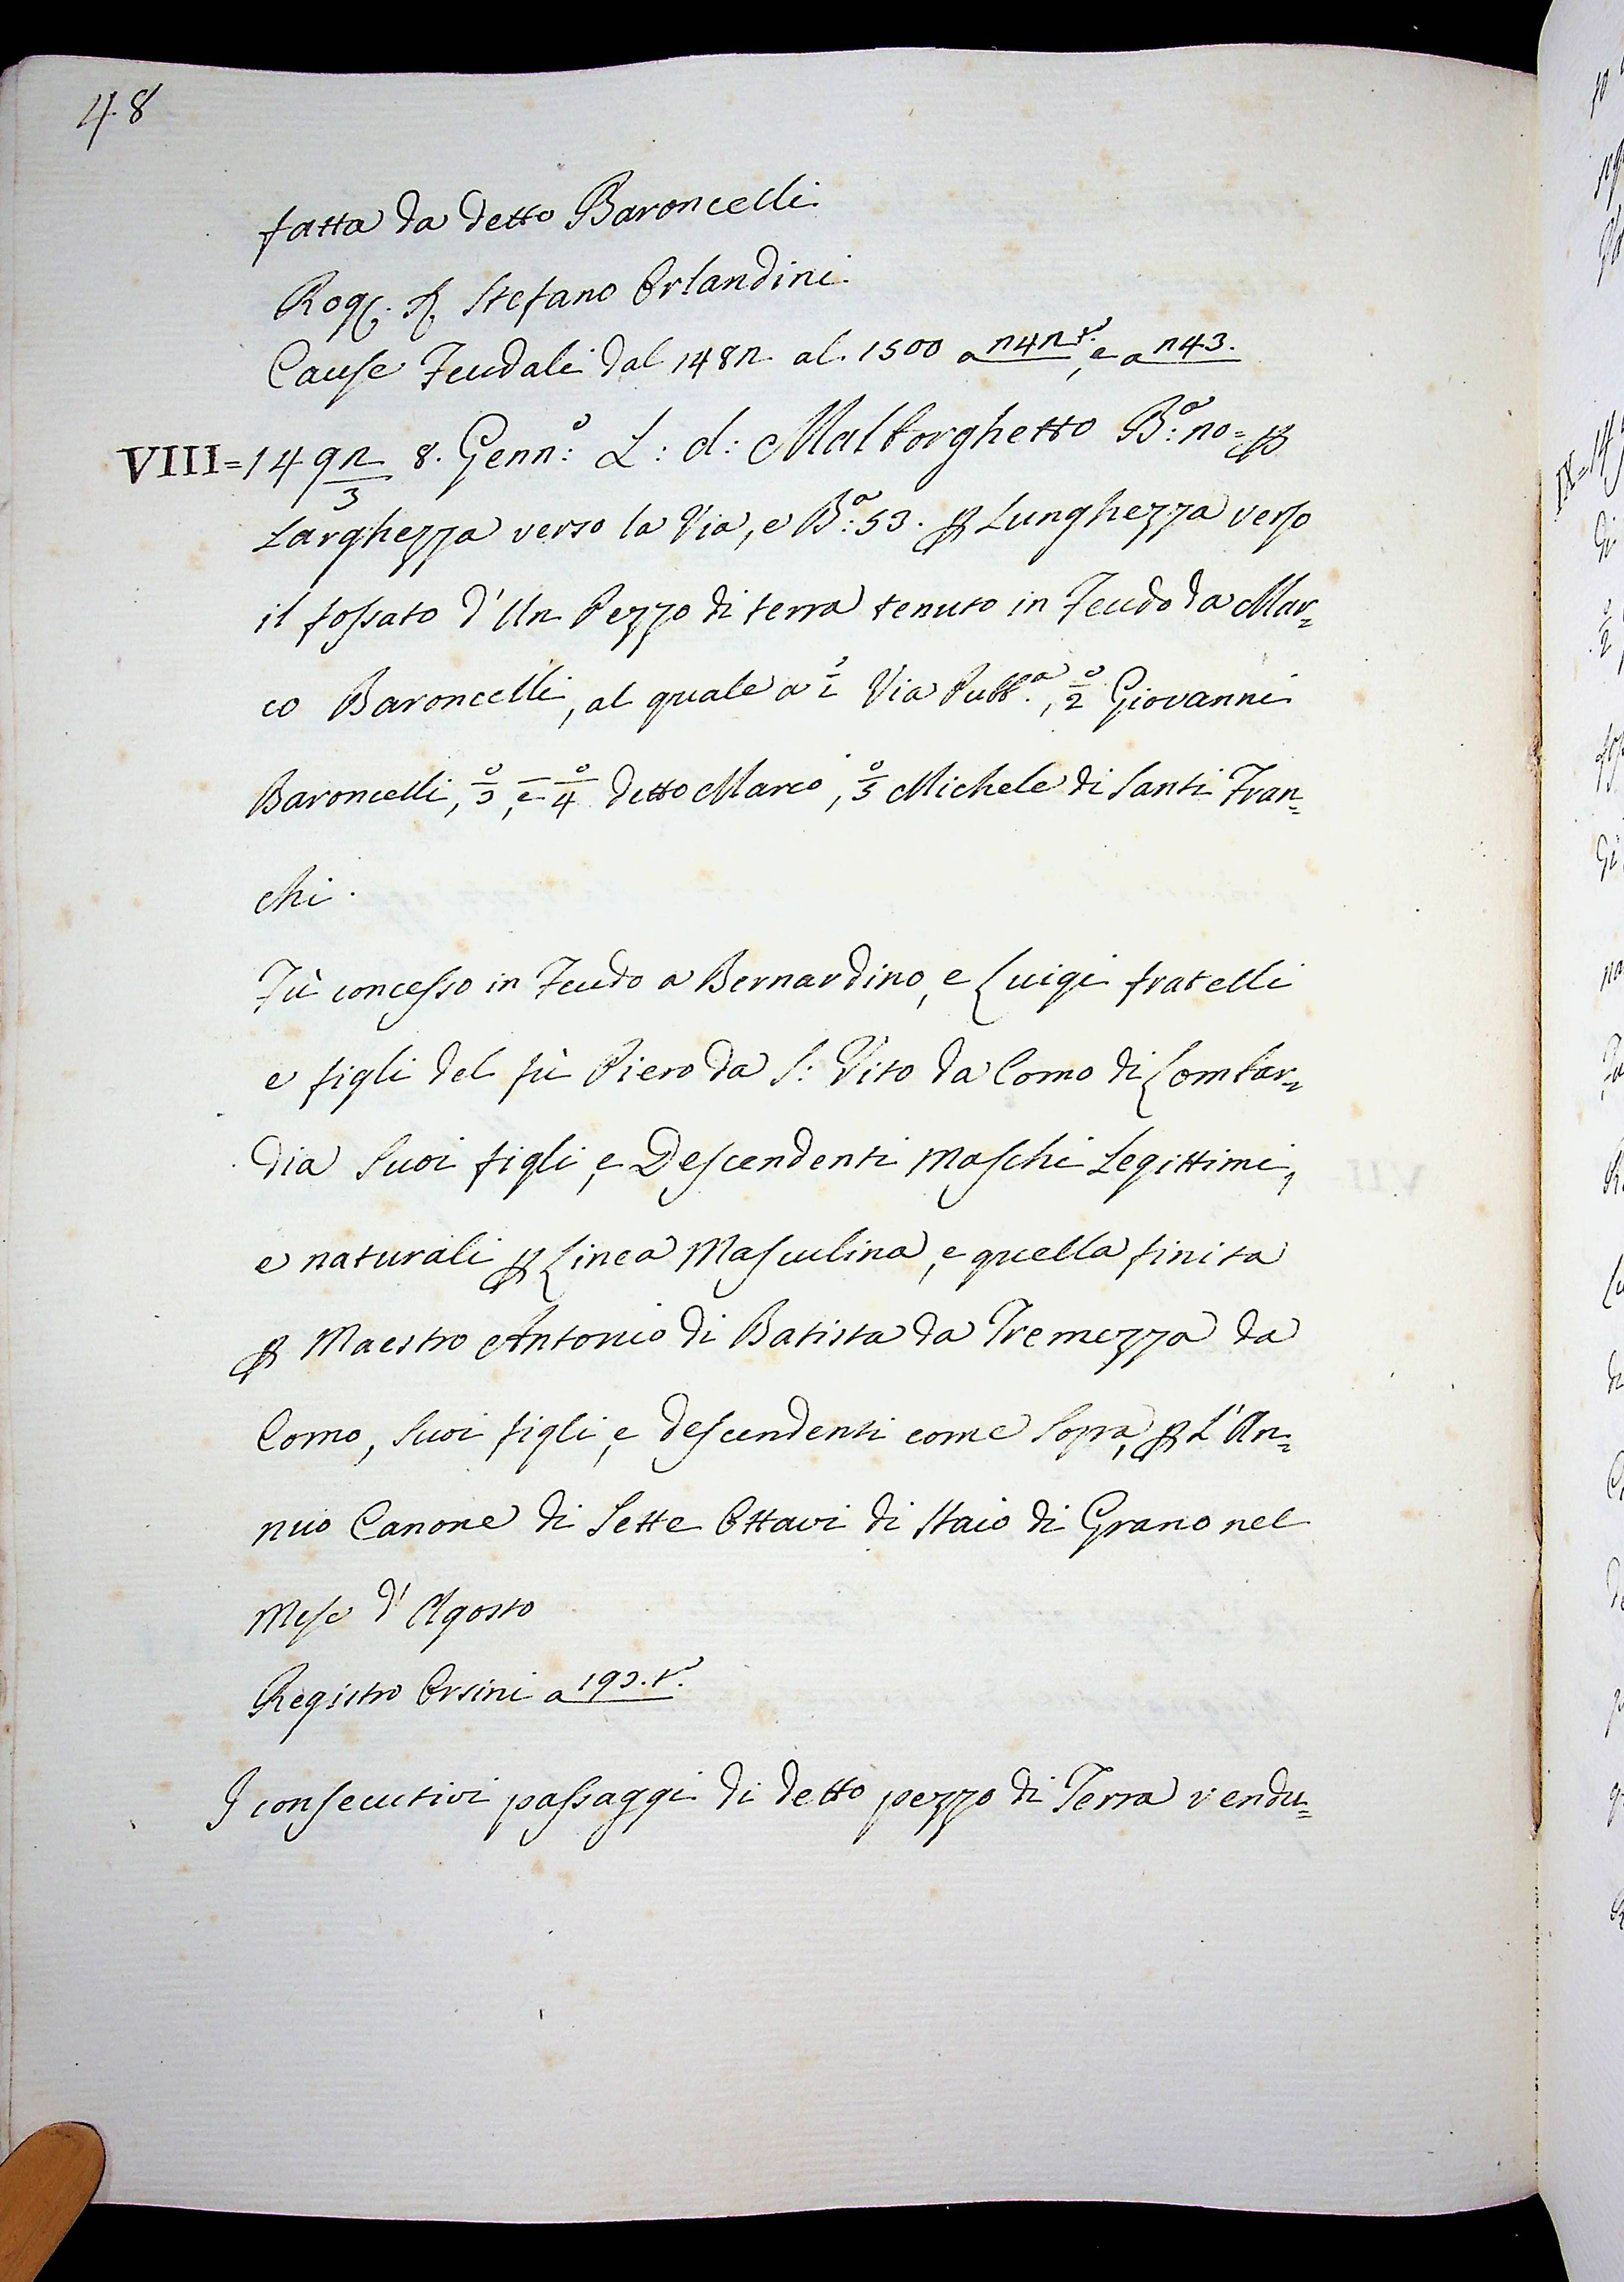 48
fatta da detto Baroncelli
Rog. S. Stefano Orlandini
Cause Feudali dal 1482 al 1500 a 242 t.º, e a 243.
VIII = 1492/3 8. Genn:º L: d: Malborghetto B:ª 20= p
Larghezza verso la Via, e B:ª 53. p Lunghezza verso
il fossato d'Un Pezzo di terra tenuto in Feudo da Mar=
co Baroncelli, al quale a 1º Via Pubb.ª, 2º Giovanni
Baroncelli, 3º, e 4º detto Marco, 5º Michele di Santi Fran=
chi.
Fù concesso in Feudo a Bernardino, e Luigi fratelli
e figli del fù Piero da S: Vito da Como di Lombar=
dia Suoi figli, e Descendenti Maschi Legittimi,
e naturali p Linea Masculina, e quella finita
p Maestro Antonio di Batista da Tremezza da
Como, Suoi figli, e descendenti come Sopra, p L'An=
nuo Canone di Sette Ottavi di Staio di Grano nel
Mese d'Agosto
Registro Orsini a 193. t.º
I consecutivi passaggi di detto pezzo di Terra vendu=